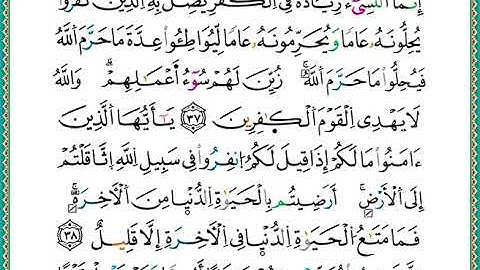 إِنَّمَا ٱلنَّسِىٓءُ زِيَادَةٌ فِى ٱلْكُفْرِ يُضَلُّ بِهِ ٱلَّذِينَ كَفَرُوا۟
يُحِلُّونَهُۥ عَامًا وَيُحَرِّمُونَهُۥ عَامًا لِّيُوَاطِـُٔوا۟ عِدَّةَ مَا حَرَّمَ ٱللَّهُ
فَيُحِلُّوا۟ مَا حَرَّمَ ٱللَّهُ ۚ زُيِّنَ لَهُمْ سُوٓءُ أَعْمَـٰلِهِمْ ۗ وَٱللَّهُ
لَا يَهْدِى ٱلْقَوْمَ ٱلْكَـٰفِرِينَ ٣٧ يَـٰٓأَيُّهَا ٱلَّذِينَ
ءَامَنُوا۟ مَا لَكُمْ إِذَا قِيلَ لَكُمُ ٱنفِرُوا۟ فِى سَبِيلِ ٱللَّهِ ٱثَّاقَلْتُمْ
إِلَى ٱلْأَرْضِ ۚ أَرَضِيتُم بِٱلْحَيَوٰةِ ٱلدُّنْيَا مِنَ ٱلْـَٔاخِرَةِ ۚ
فَمَا مَتَـٰعُ ٱلْحَيَوٰةِ ٱلدُّنْيَا فِى ٱلْـَٔاخِرَةِ إِلَّا قَلِيلٌ ٣٨